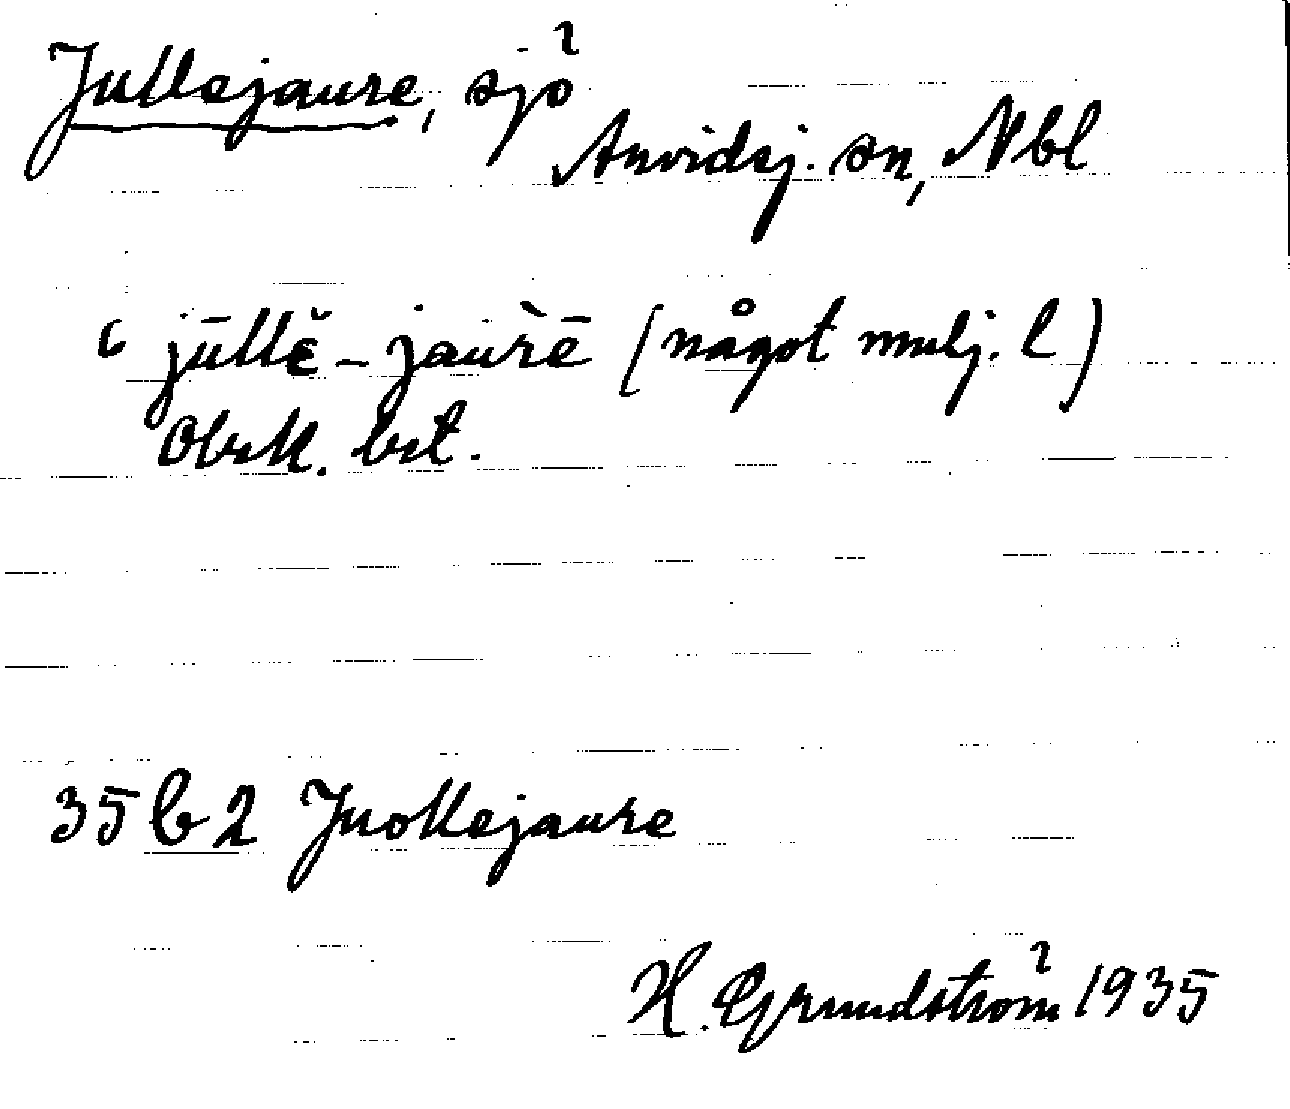 Jullejaure, sjö
Arvidsj. sn, Nbl
‘ jūllĕ-jaùrē (något mulj. l)
Obek. bet.
35 b 2 Juollejaure
H. Grundström 1935